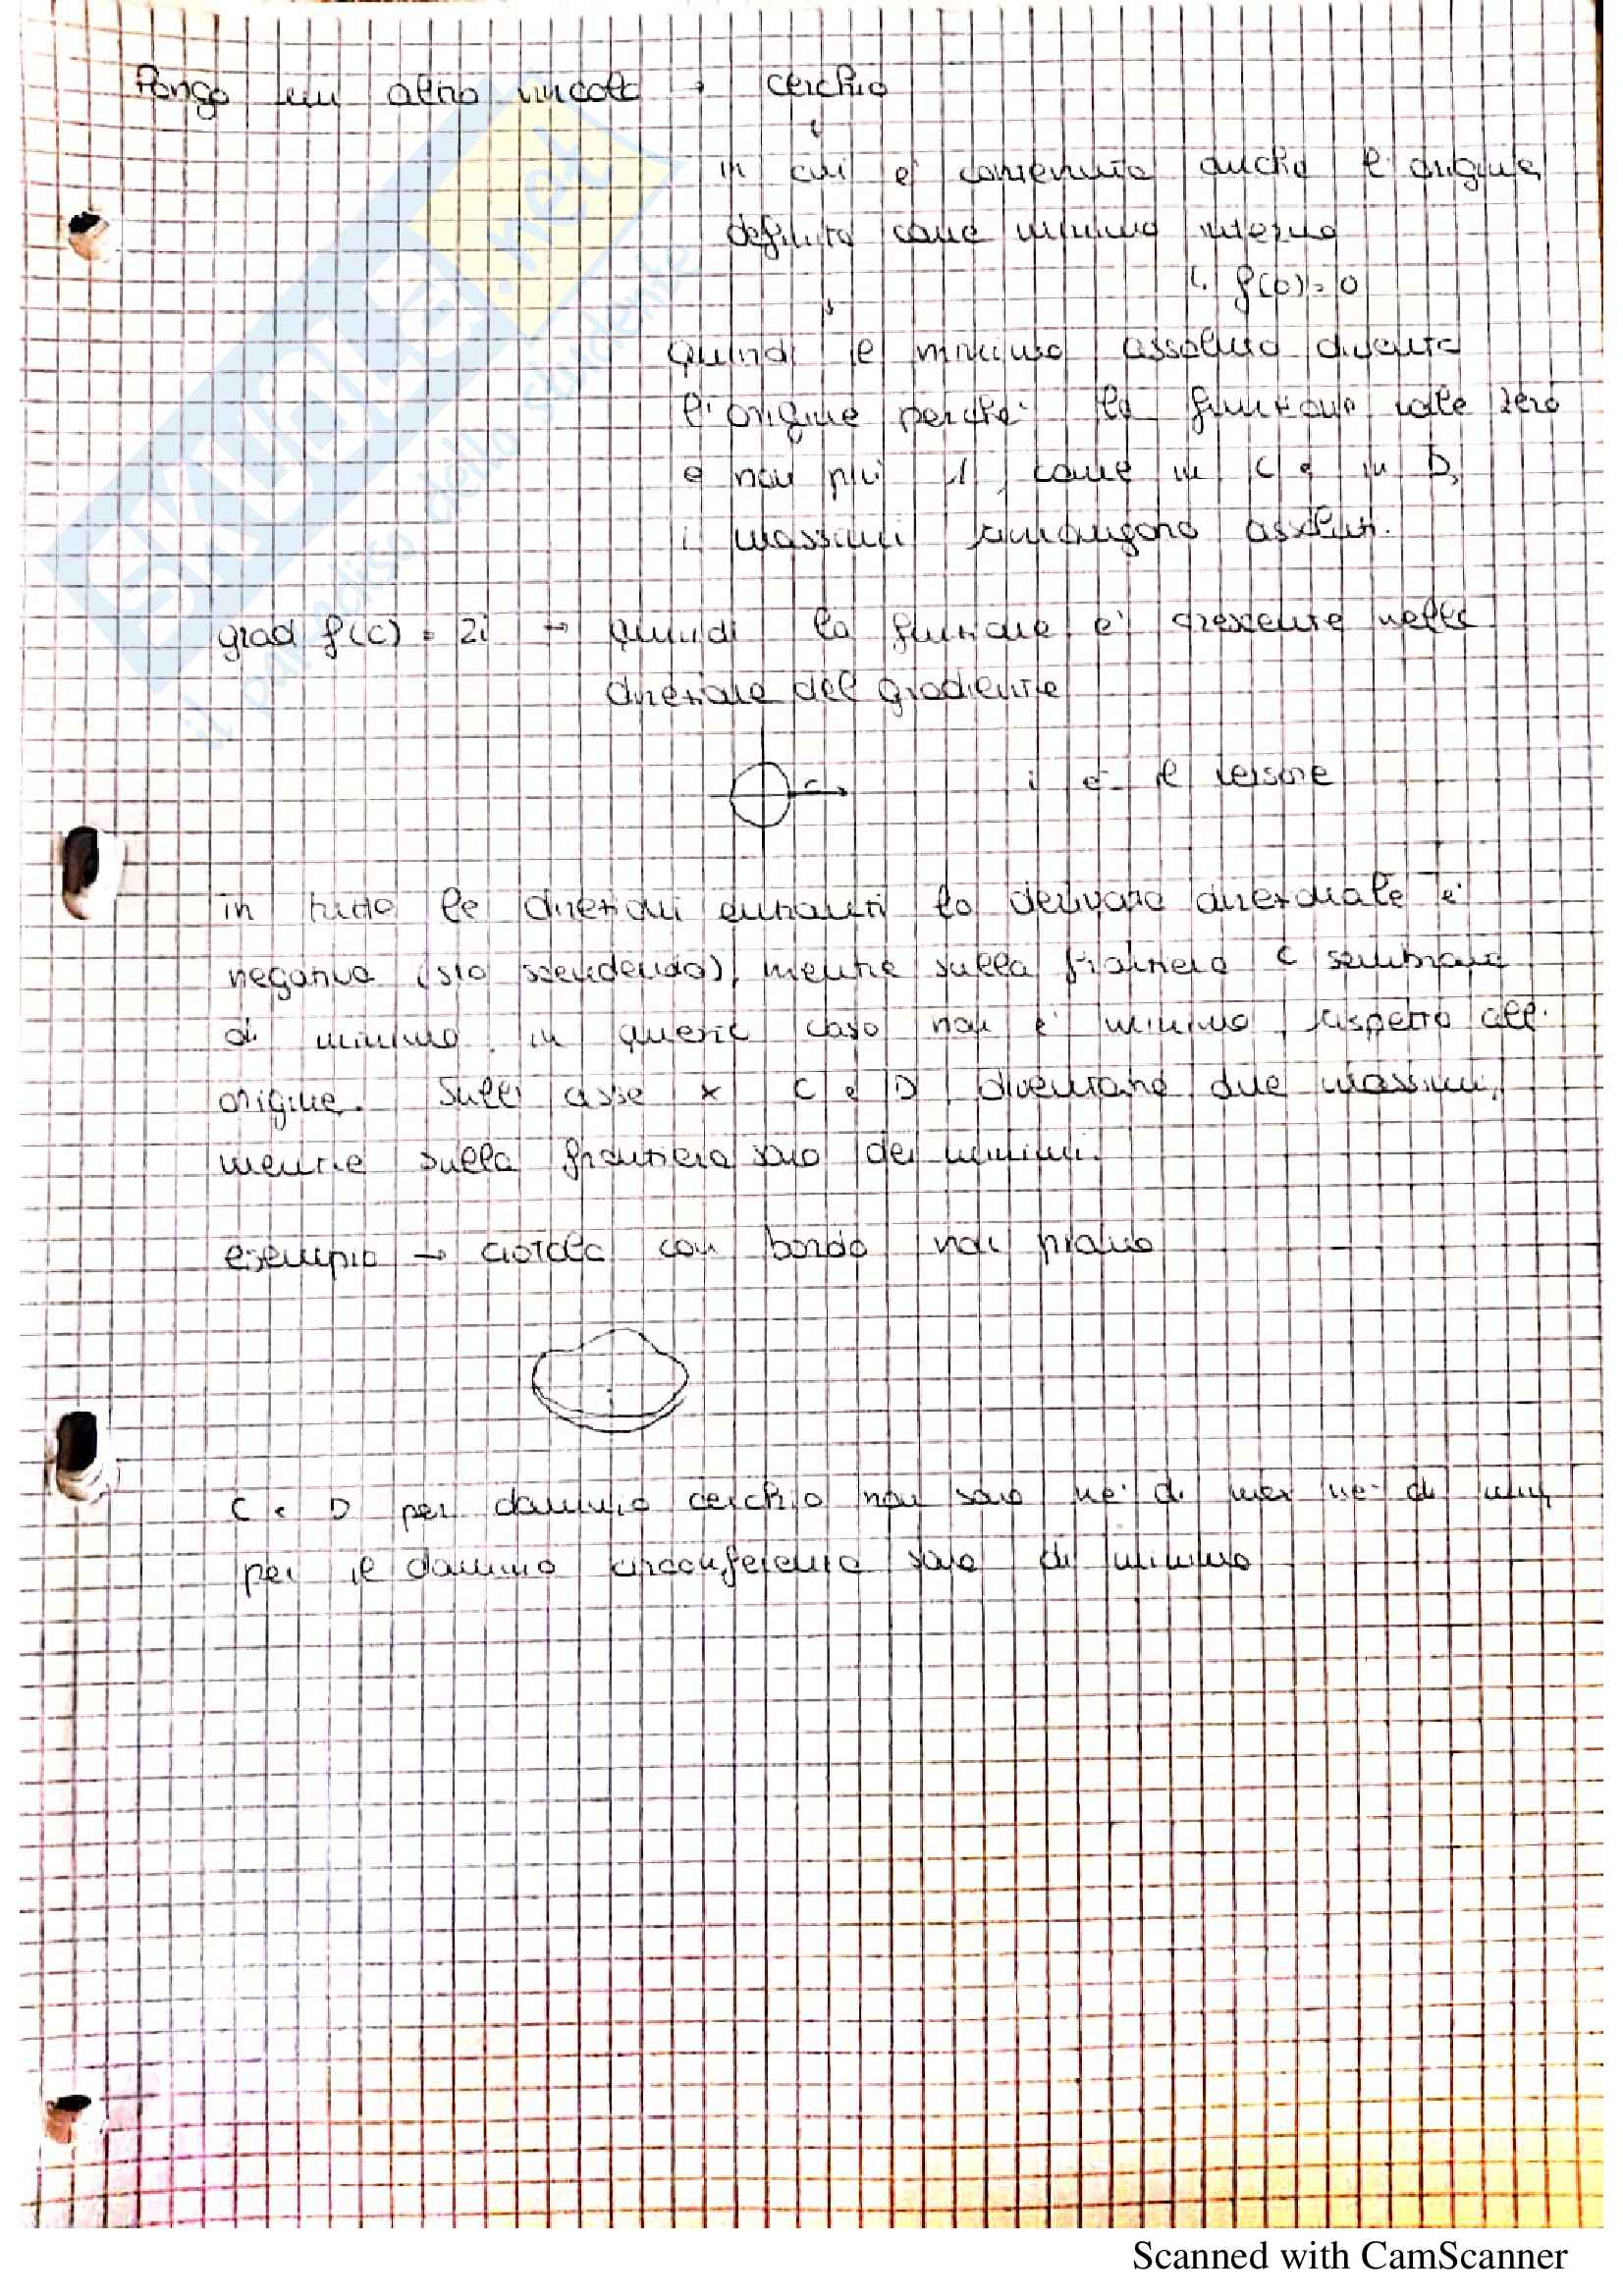 Pongo un altro vincolo → cerchio
in cui è contenuta anche l'origine,
definita come minimo interno
↳ f(0)=0
quindi il minimo assoluto diventa
l'origine perché la funzione vale zero
e non più 1, come in C e in D,
i massimi rimangono assoluti.
grad f(C) = 2i → quindi la funzione è crescente nella
direzione del gradiente
C
i è il versore
in tutte le direzioni entranti la derivata direzionale è
negativa (sto scendendo), mentre sulla frontiera C sembrano
di minimo, in questo caso non è minimo rispetto all'
origine. Sull'asse x C e D diventano due massimi,
mentre sulla frontiera sono dei minimi.
esempio → ciotola con bordo non piano
C e D per dominio cerchio non sono né di max né di min,
per il dominio circonferenza sono di minimo
SKUOLA.net
il paradiso dello studente
Scanned with CamScanner